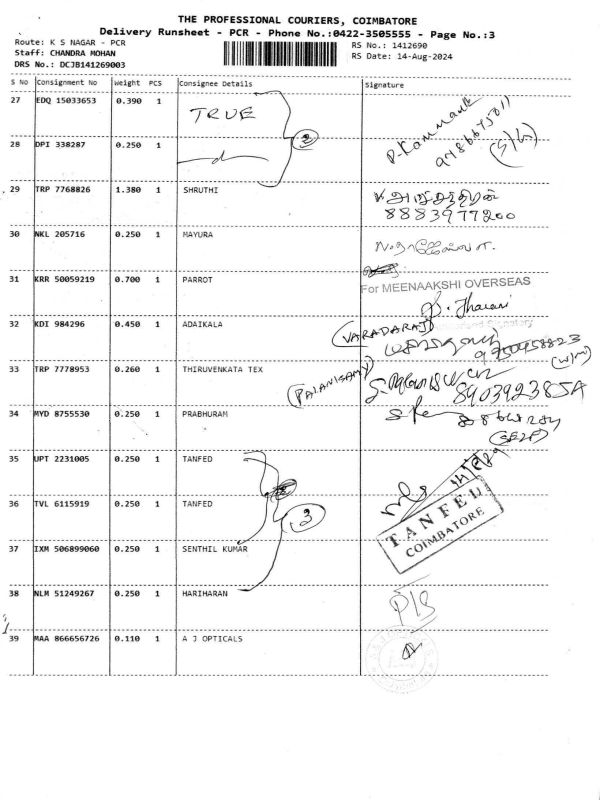 THE PROFESSIONAL COURIERS, COIMBATORE
Delivery Runsheet - PCR - Phone No.:0422-3505555 - Page No.:3
Route: K S NAGAR - PCR
RS No.: 1412690
Staff: CHANDRA MOHAN
RS Date: 14-Aug-2024
DRS No.: DCJB141269003
S No Consignment No Weight PCS Consignee Details Signature
27 EDQ 15033653 0.390 1 TRUE
2
28 DPI 338287 0.250 1
29 TRP 7768826 1.380 1 SHRUTHI
8883977200
30 NKL 205716 0.250 1 MAYURA
31 KRR 50059219 0.700 1 PARROT
For MEENAAKSHI OVERSEAS
32 KDI 984296 0.450 1 ADAIKALA
(VARADARAJ)
33 TRP 7778953 0.260 1 THIRUVENKATA TEX
(PALANISAMY)
34 MYD 8755530 0.250 1 PRABHURAM
(SELF)
35 UPT 2231005 0.250 1 TANFED
36 TVL 6115919 0.250 1 TANFED
3
TANFED
COIMBATORE
37 IXM 506899060 0.250 1 SENTHIL KUMAR
38 NLM 51249267 0.250 1 HARIHARAN
39 MAA 866656726 0.110 1 A J OPTICALS